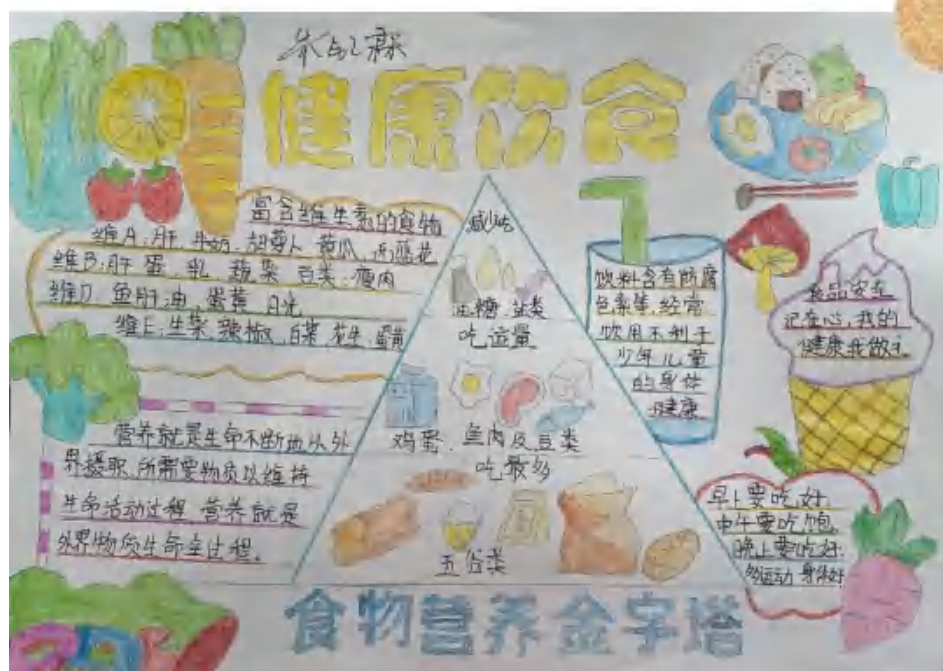 健康饮食
富含维生素的食物
维A:肝 牛奶 胡萝卜 黄瓜 西蓝花
维B:肝 蛋 乳 蔬菜 豆类 瘦肉
维D 鱼肝油 蛋黄 月光
维E:生菜 辣椒 白菜 花生 蛋黄
营养就是生命不断地从外
界摄取所需要物质以维持
生命活动过程 营养就是
外界物质生命全过程。
减少吃
油糖 盐类
吃适量
鸡蛋 鱼肉及豆类
吃最多
五谷类
饮料含有防腐
色素等,经常
饮用不利于
少年儿童
的身体
健康
食品安全
记在心,我的
健康我做主
早上要吃好
中午要吃饱
晚上要吃好
多运动 身体好
食物营养金字塔